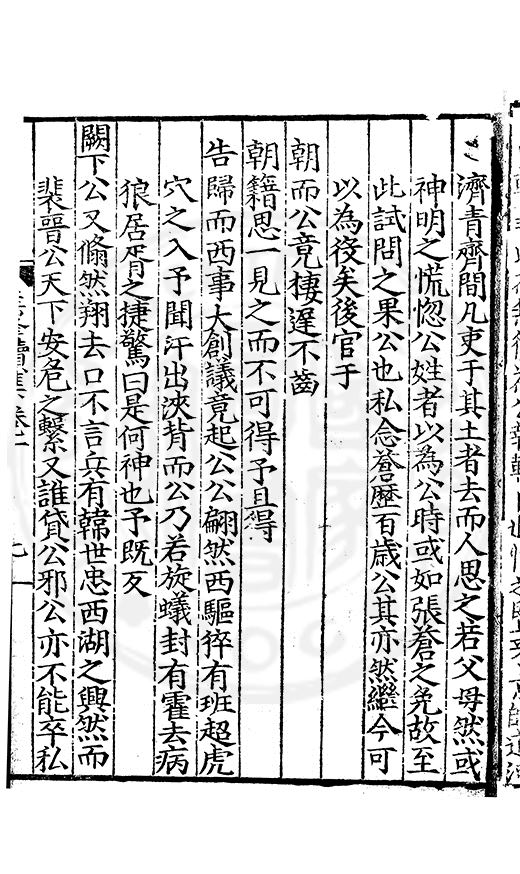 濟青齊間凡吏于其土者去而人思之若父母然或
神明之慌惚公姓者以為公時或如張蒼之免故至
此試問之果公也私念蒼歷百歲公其亦然繼今可
以為役矣後官于
朝而公竟棲遲不齒
朝籍思一見之而不可得予且得
告歸而西事大創議竟起公公翩然西驅猝有班超虎
穴之入予聞汗出浹背而公乃若旋蟻封有霍去病
狼居胥之捷驚曰是何神也予既友
闕下公又翛然翔去口不言兵有韓世忠西湖之興然而
裴晉公天下安危之繫又誰貸公邪公亦不能卒私